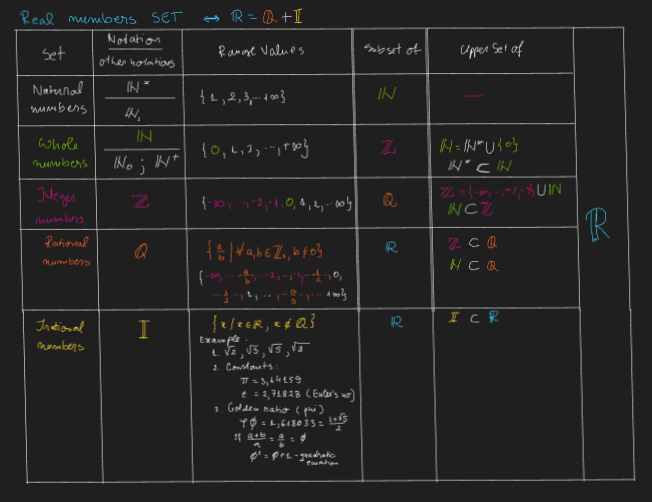 Real numbers SET ↔ ℝ = ℚ + 𝕀
Set
Notation
other notations
Range Values
Subset of
Upper Set of
Natural
numbers
ℕ*
ℕ₁
{1, 2, 3, ... +∞}
ℕ
—
Whole
numbers
ℕ
ℕ₀ ; ℕ⁺
{0, 1, 2, ..., +∞}
ℤ
ℕ = ℕ* ∪ {0}
ℕ* ⊂ ℕ
Integer
numbers
ℤ
{-∞, ..., -2, -1, 0, 1, 2, ... ∞}
ℚ
ℤ = {-∞, ..., -2, -1} ∪ ℕ
ℕ ⊂ ℤ
Rational
numbers
ℚ
{a/b | ∀ a,b ∈ ℤ, b ≠ 0}
{-∞, ... -a/b, ... -2, ..., -1, ... -1/2 ..., 0,
... 1/2 ..., 1, ..., a/b, ... +∞}
ℝ
ℤ ⊂ ℚ
ℕ ⊂ ℚ
Irrational
numbers
𝕀
{x / x ∈ ℝ, x ∉ ℚ}
Example:
1. √2, √3, √5, √8
2. Constants:
π = 3,14159
e = 2,71828 (Euler's no)
3. Golden ratio (phi)
φ = 1,618033 = (1+√5)/2
If (a+b)/a = a/b = φ
φ² = φ+1 - quadratic
equation
ℝ
𝕀 ⊂ ℝ
ℝ